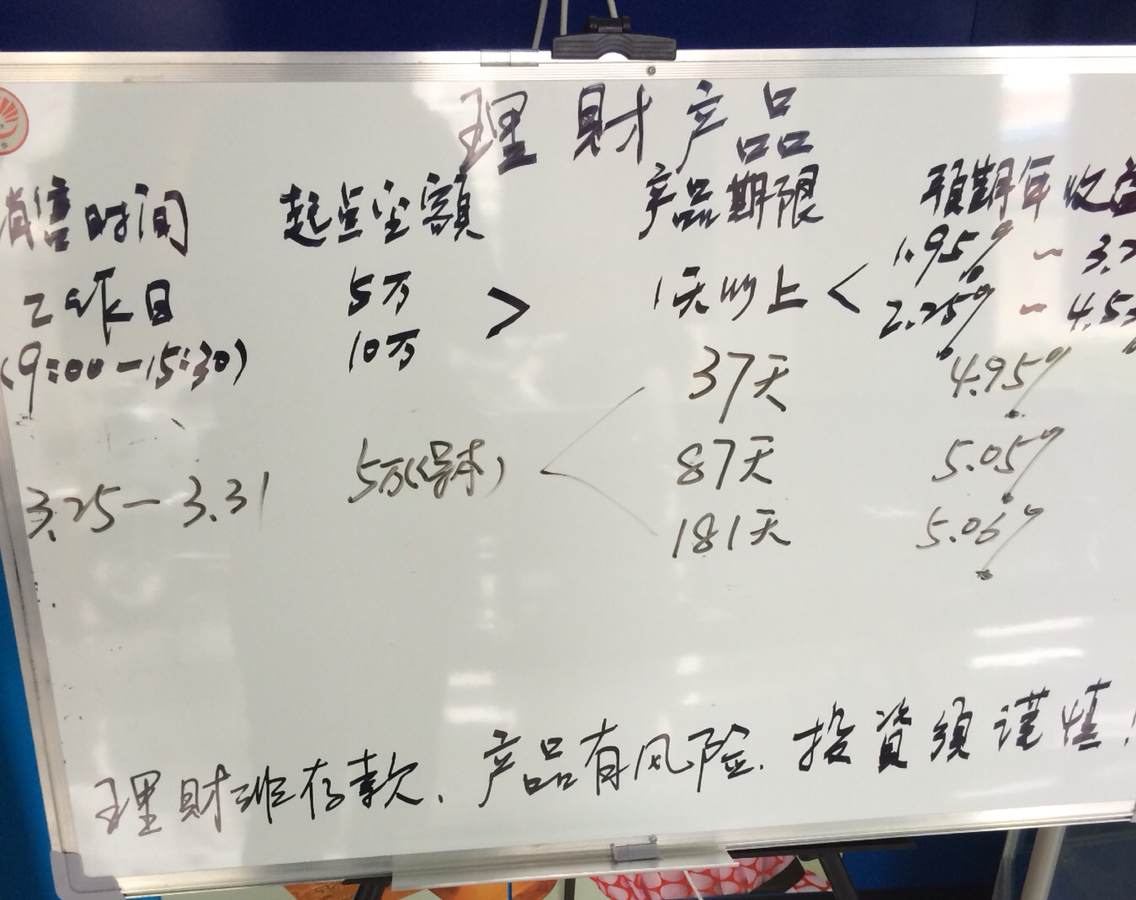 理财产品
销售时间 起点金额 产品期限 预期年收益
工作日 5万 > 1天以上 < 1.95% ~ 3.2
(9:00-15:30) 10万 2.25% ~ 4.5
37天 4.95%
3.25-3.31 5万(保本) 87天 5.05%
181天 5.06%
理财非存款、产品有风险、投资须谨慎!